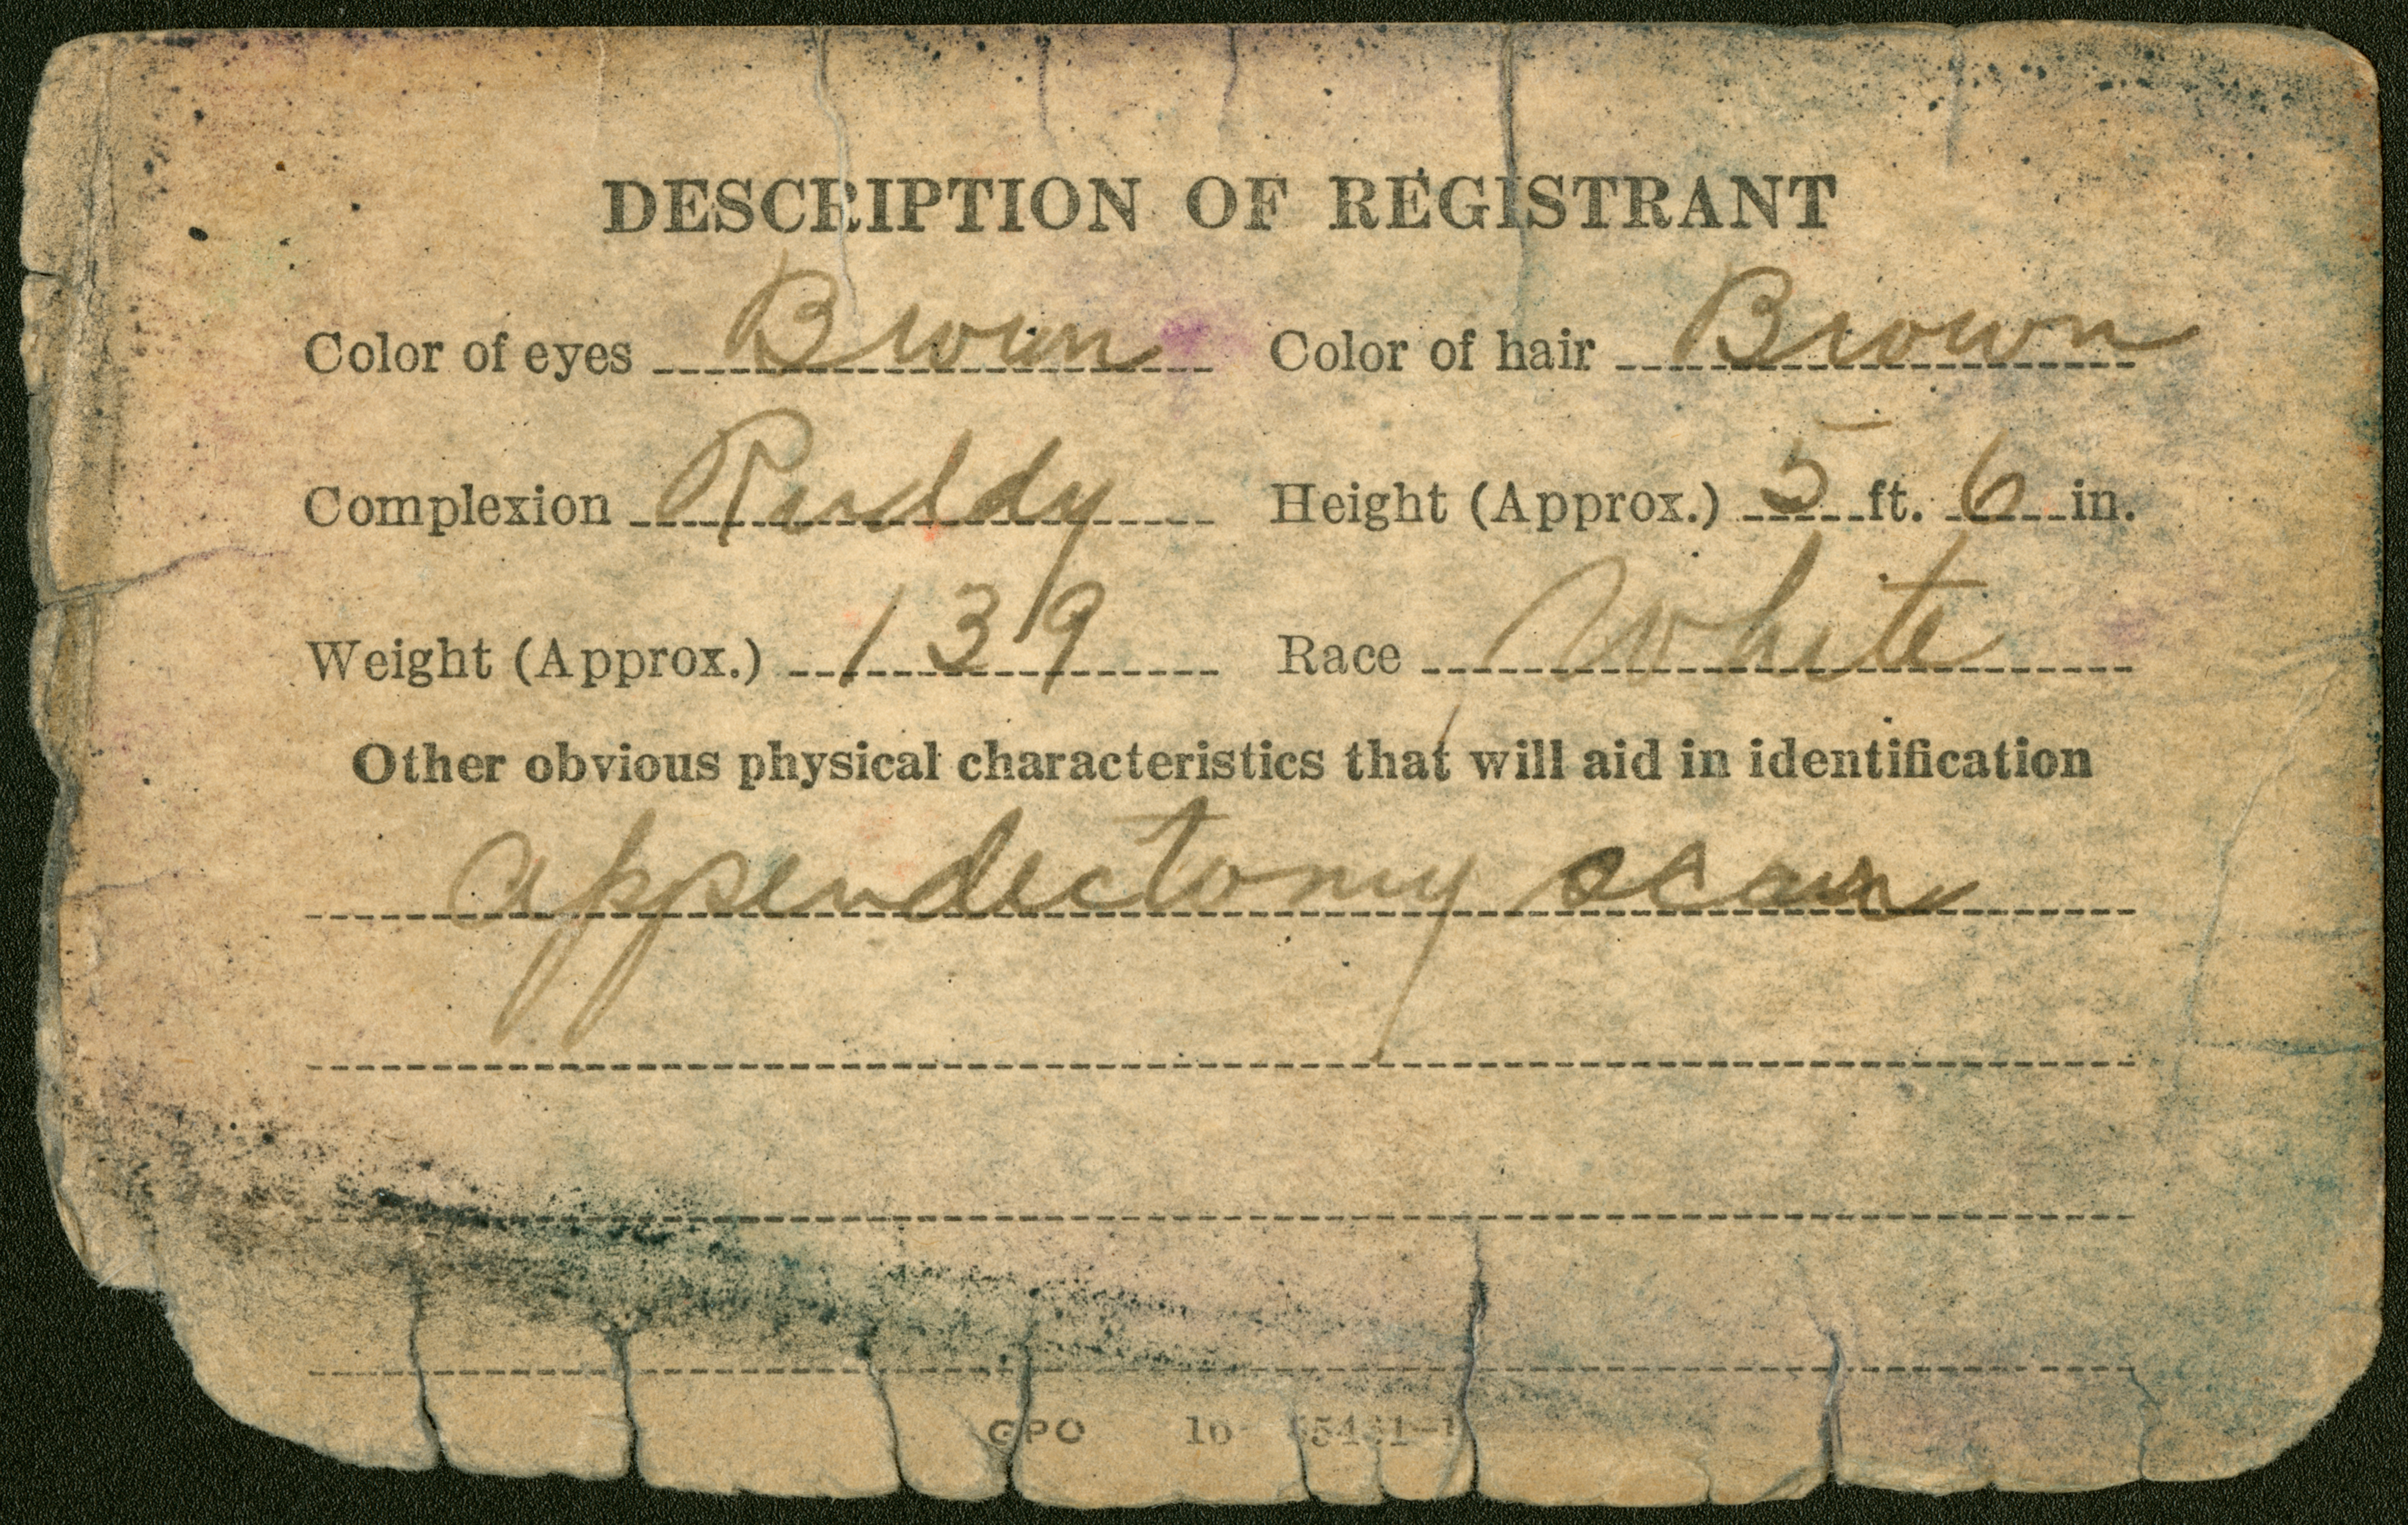 DESCRIPTION OF REGISTRANT
Color of eyes Brown Color of hair Brown
Complexion Ruddy Height (Approx.) 5 ft. 6 in.
Weight (Approx.) 139 Race White
Other obvious physical characteristics that will aid in identification
appendectomy scar
GPO